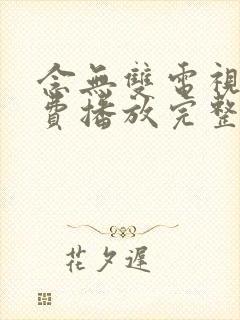 念無雙電視
費播放完整
花夕遲